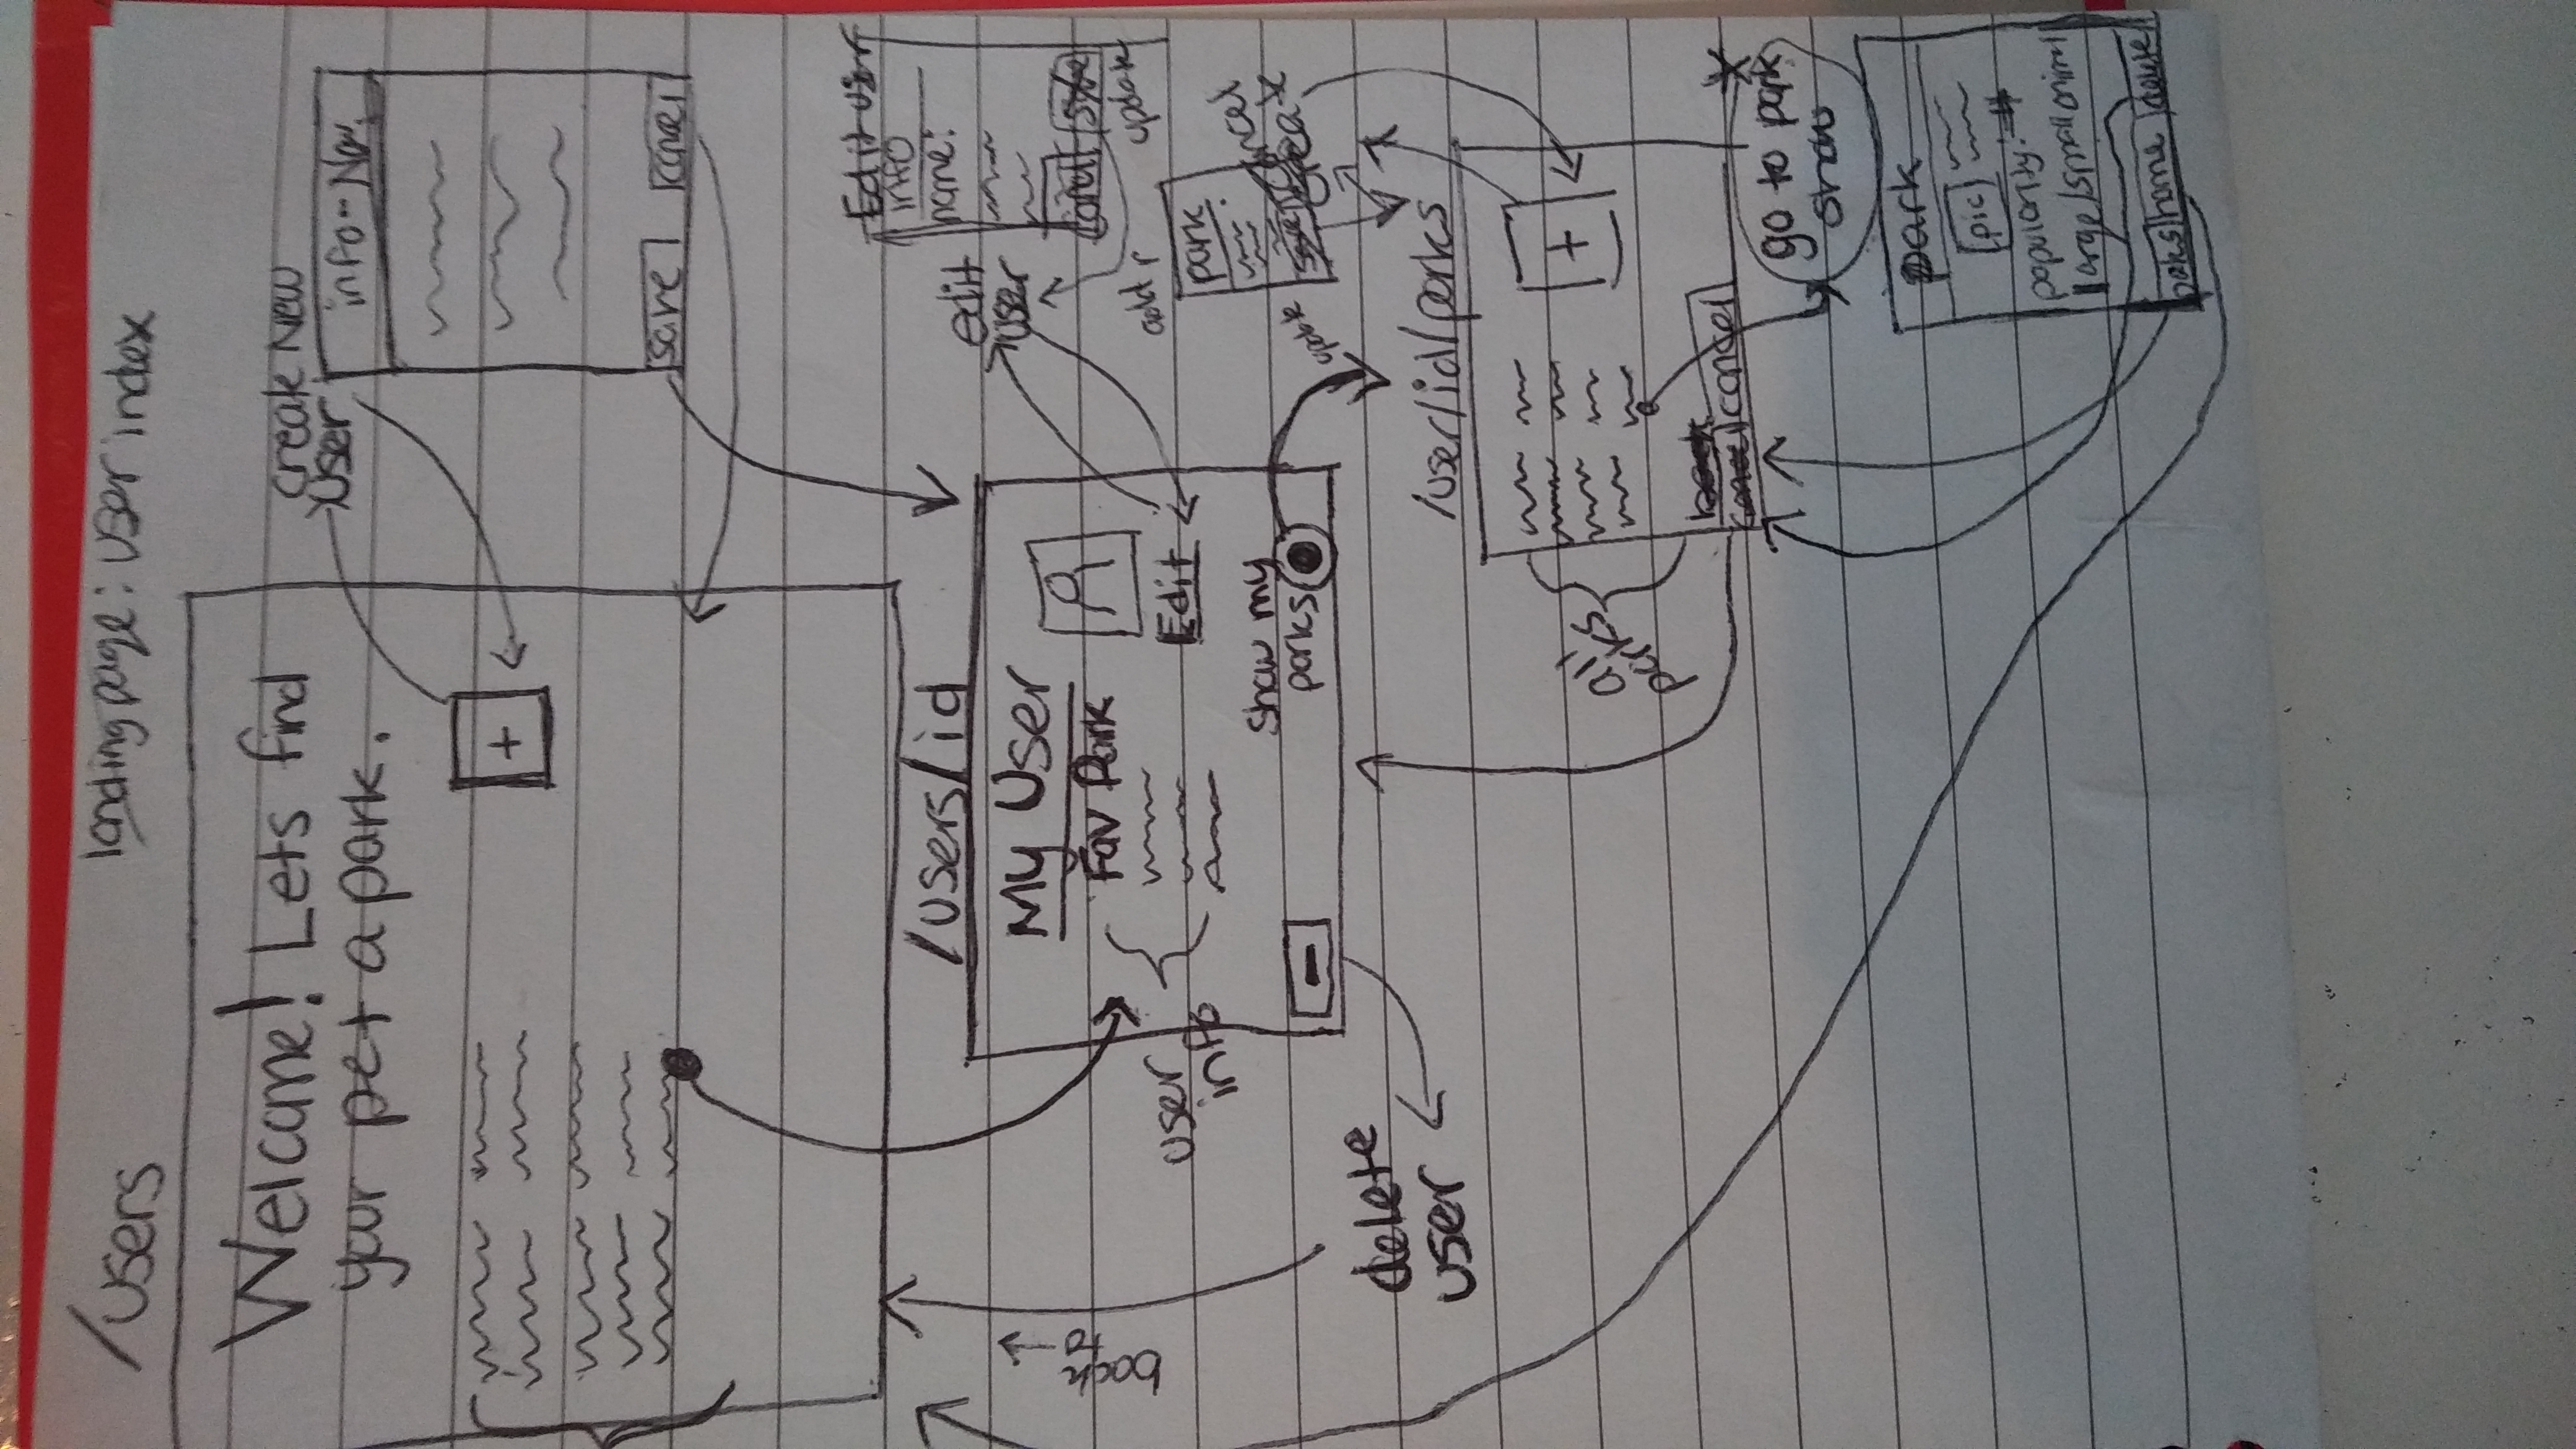 /users
landing page: user index
Welcome! Lets find
your pet a park.
+
create New
user
save
cancel
/users/id
My User
Fav Park
user
info
Edit
show my
parks
-
back
to →
delete
user
edit
user
Edit user
info
name:
cancel
save
update
add
park
cancel
create
update
/user/id/parks
+
all
parks
cancel
go to park
show
park
pic
popularity: #
large/small animal
paks
home
delete